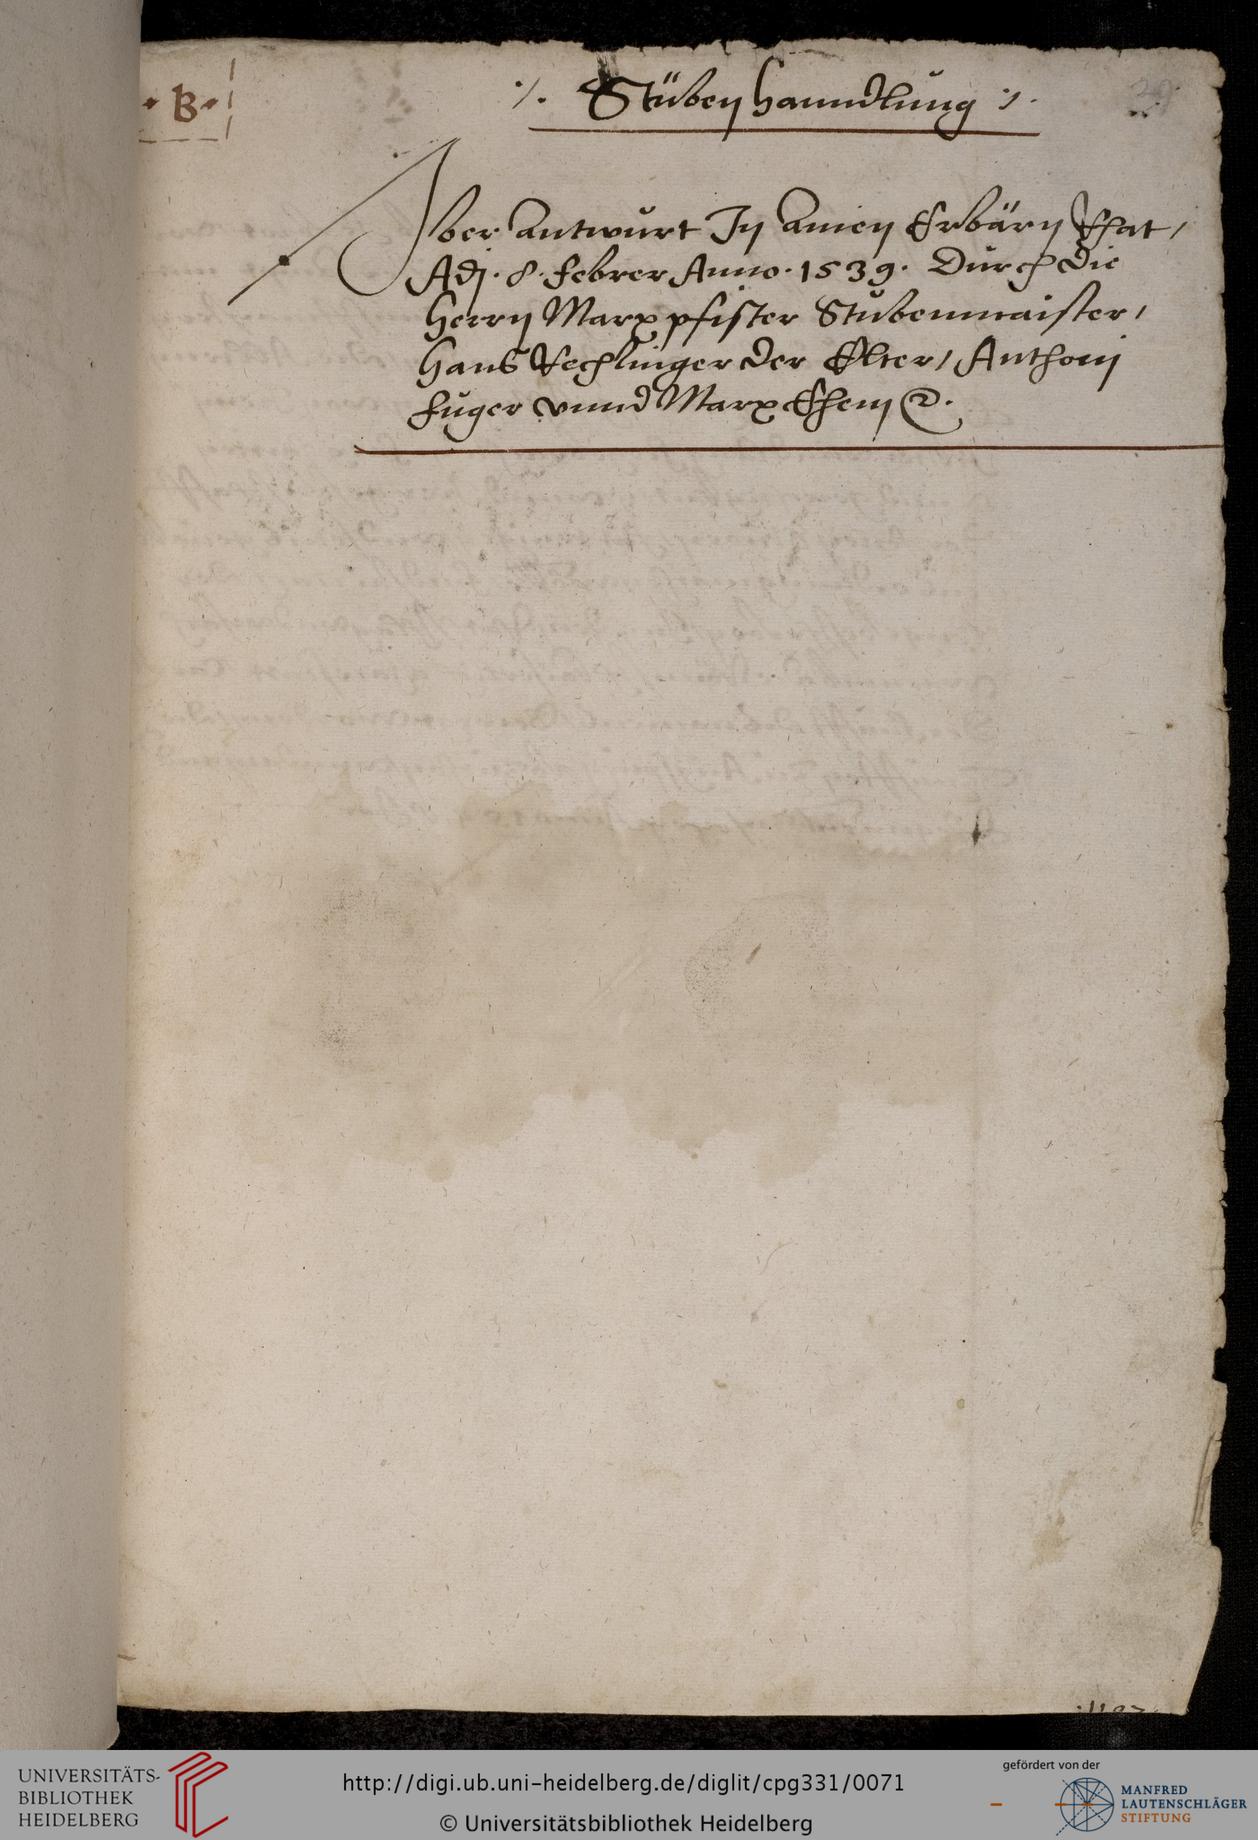 · B ·
·/. Stüben hanndlung ·/.
Vber antwurt Jn ainen Erbärn Rhat /
Adj. 8. Febrer Anno. 1539. Durch die
Herrn Marx pfister Stubenmaister /
Hans Rechlinger der Elter / Anthonj
Fuger vnnd Marx Ehem
UNIVERSITÄTS-
BIBLIOTHEK
HEIDELBERG
http://digi.ub.uni-heidelberg.de/diglit/cpg331/0071
© Universitätsbibliothek Heidelberg
gefördert von der
MANFRED
LAUTENSCHLÄGER
STIFTUNG